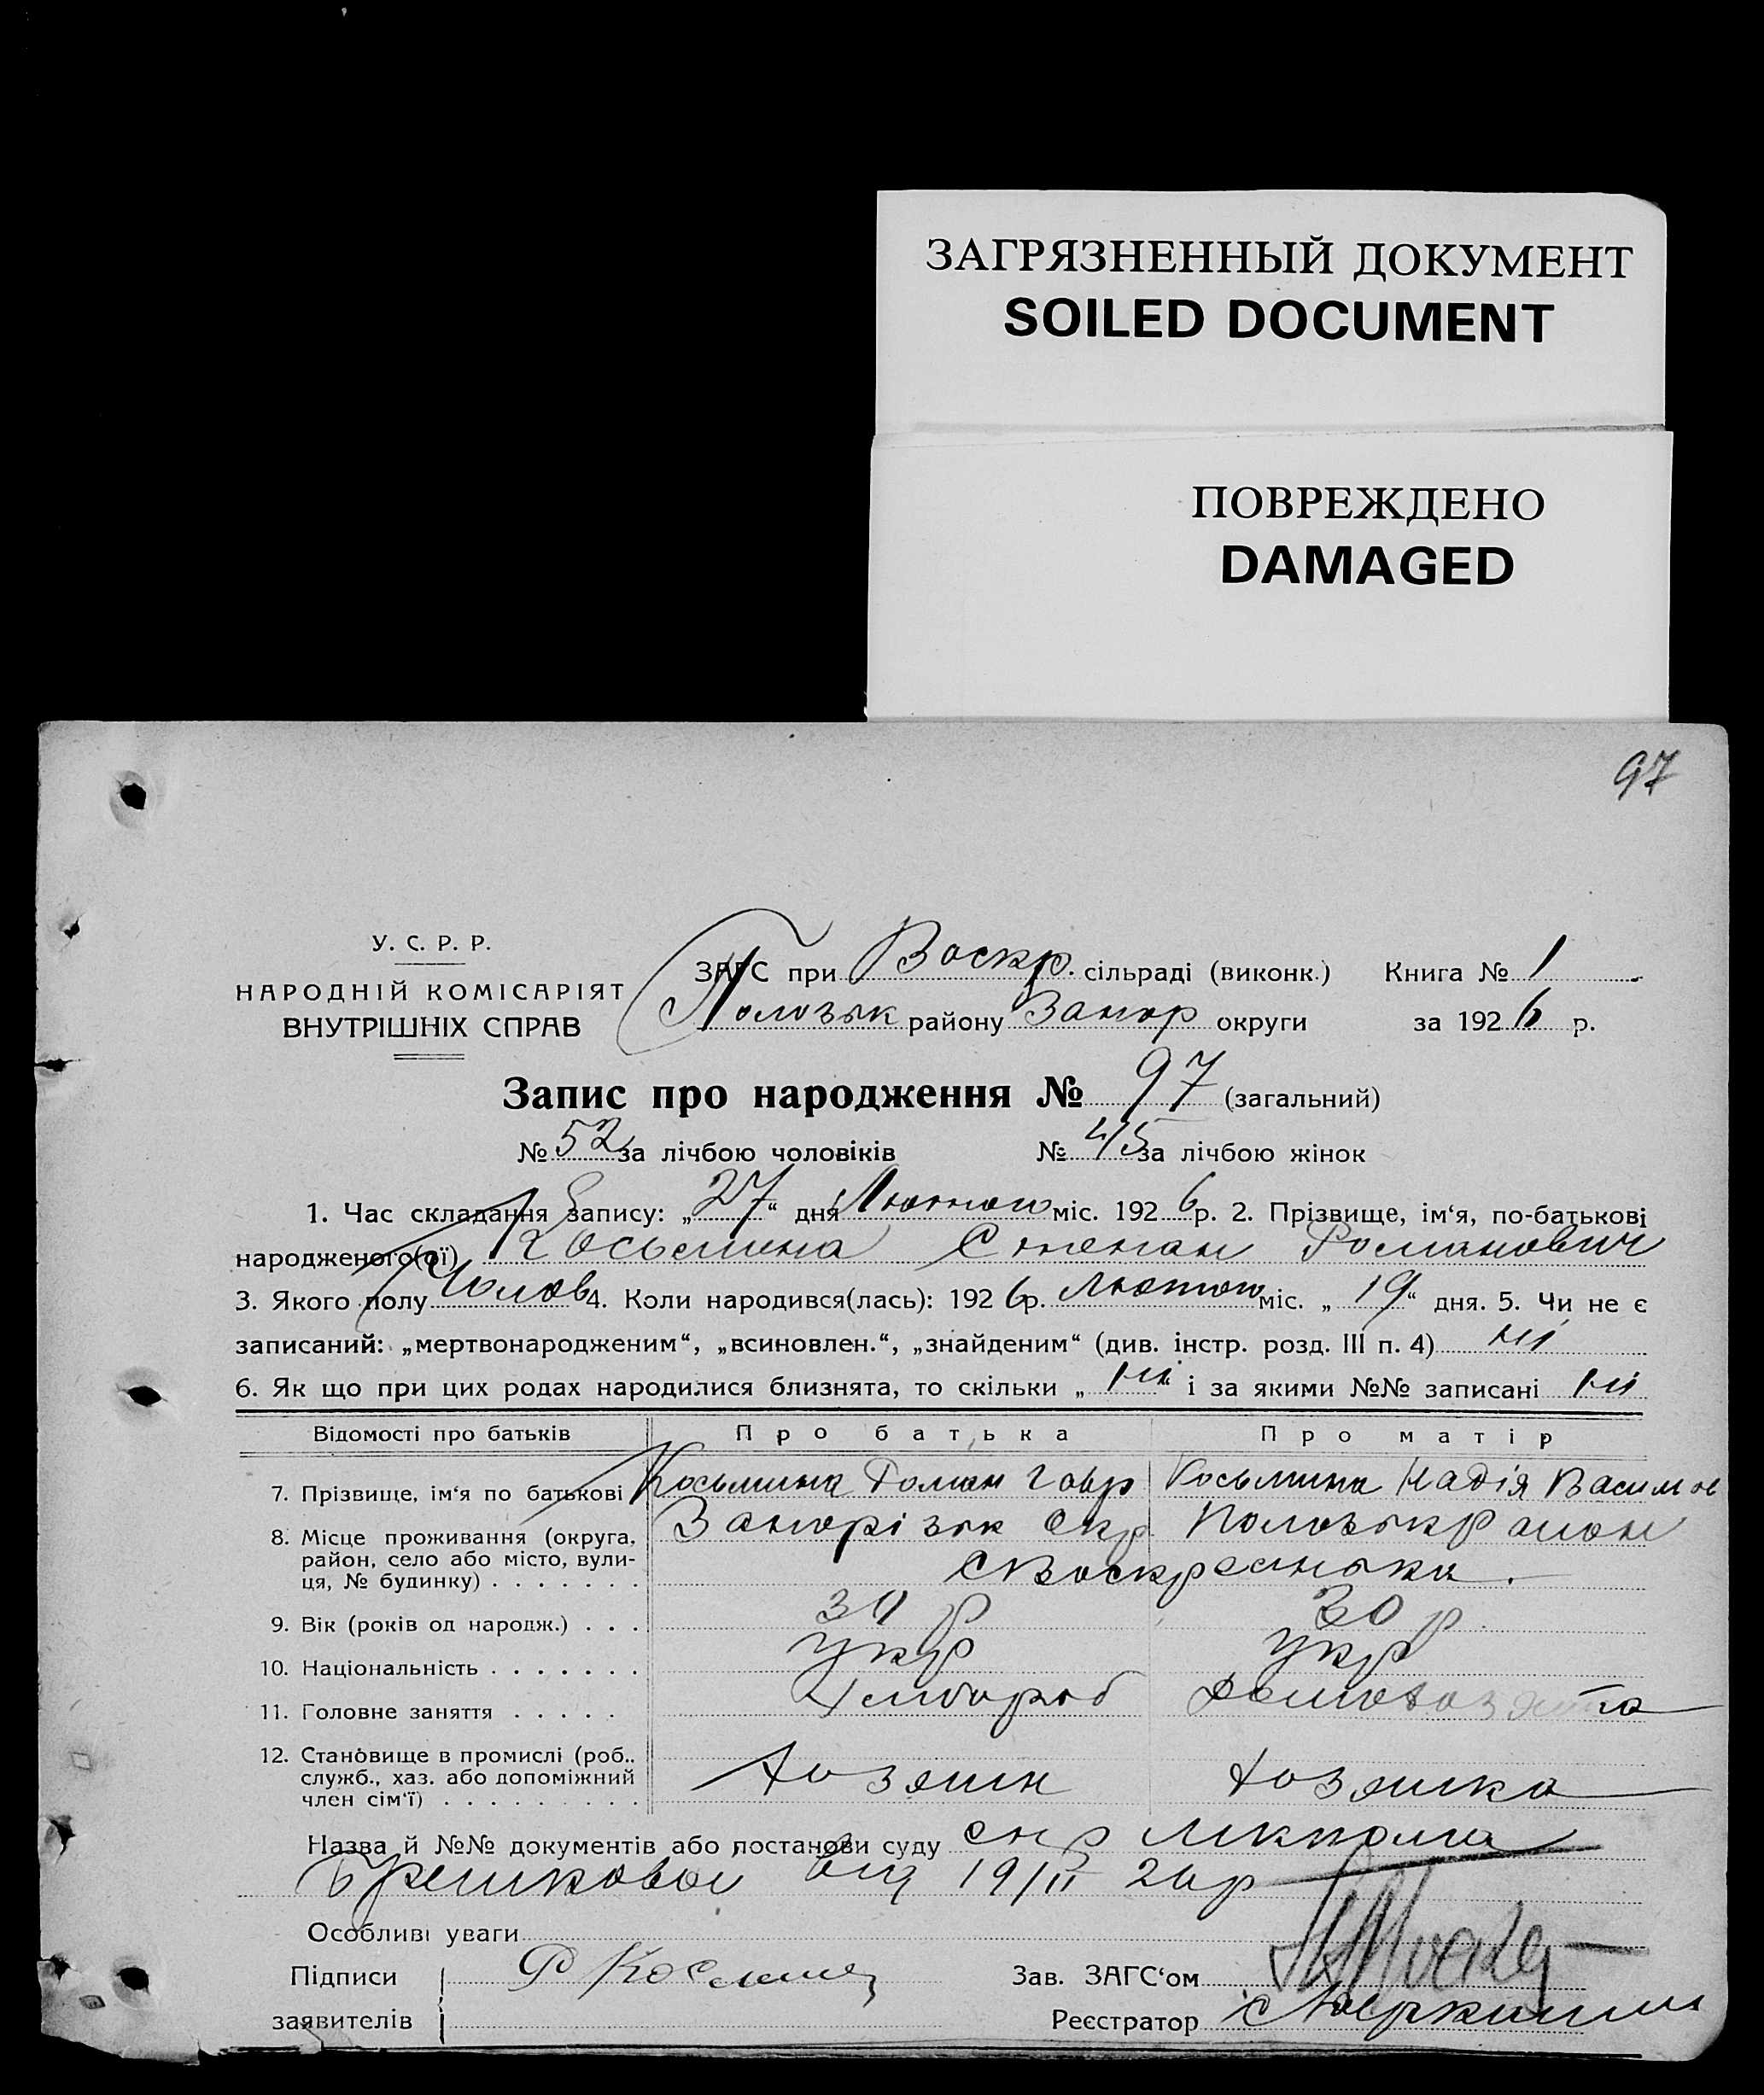 ЗАГРЯЗНЕННЫЙ ДОКУМЕНТ
SOILED DOCUMENT
ПОВРЕЖДЕНО
DAMAGED
97
У. С. Р. Р.
НАРОДНІЙ КОМІСАРІЯТ
ВНУТРІШНІХ СПРАВ
ЗАГС при Воскр. сільраді (виконк.) Книга № 1
Пологівськ району Запор округи за 1926 р.
Запис про народження № 97 (загальний)
№ 52 за лічбою чоловіків № 45 за лічбою жінок
1. Час складання запису: „27“ дня Лютого міс. 1926 р. 2. Прізвище, ім‘я, по-батькові
народженого(ої) Косьмина Степан Романович
3. Якого полу Чолов 4. Коли народився(лась): 1926 р. Лютого міс. „19“ дня. 5. Чи не є
записаний: „мертвонародженим“, „всиновлен.“, „знайденим“ (див. інстр. розд. III п. 4) ні
6. Як що при цих родах народилися близнята, то скільки „ні“ і за якими №№ записані ні
Відомості про батьків Про батька Про матір
7. Прізвище, ім‘я по батькові Косьмина Роман Гавр Косьмина Надія Васильов
8. Місце проживання (округа, район, село або місто, вулиця, № будинку) . . . . . . . Запорізьк Окр
с Воскресенька.
9. Вік (років од народж.) . . . р 30 р.
10. Національність . . . . . . . укр укр
11. Головне заняття . . . . . Хлібороб Домохозяйка
12. Становище в промислі (роб., служб., хаз. або допоміжний член сім‘ї) . . . . . . . . . Хозяин Хозяйка
Назва й №№ документів або постанови суду
від 19/II 26 р
Особливі уваги
Підписи Р Косьмин
заявителів
Зав. ЗАГС‘ом
Реєстратор